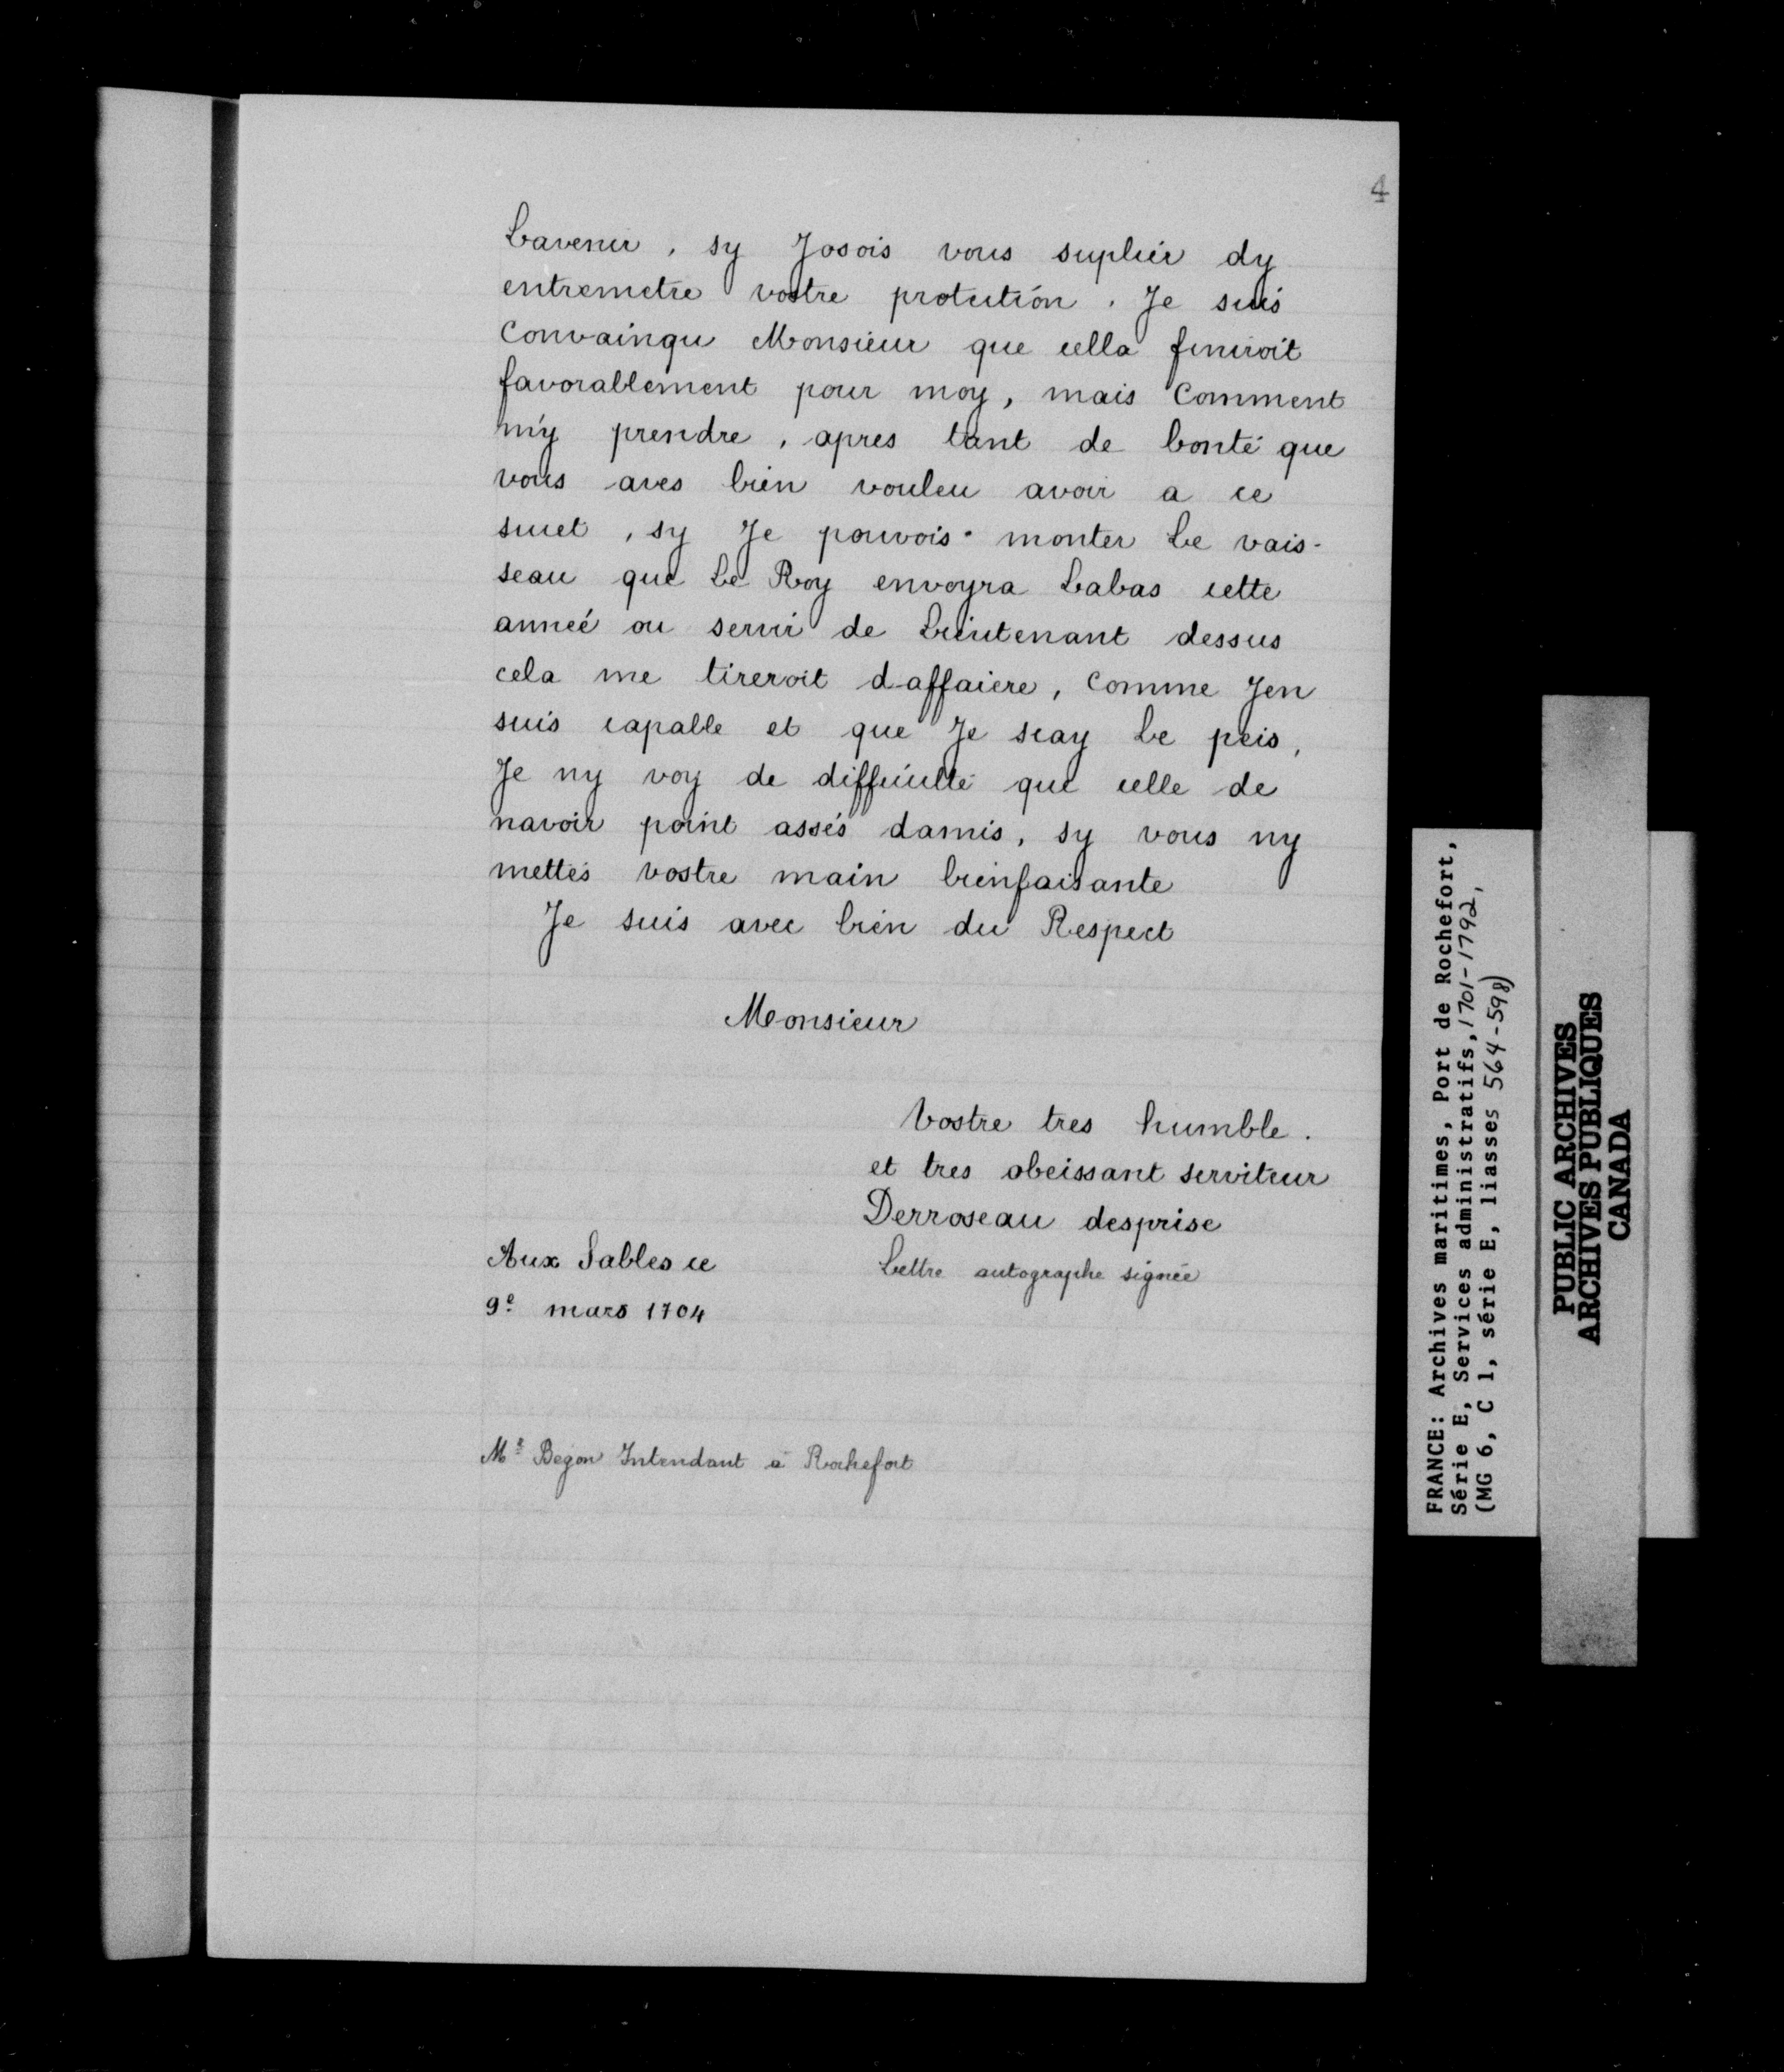 4
Lavenir, sy Josois vous suplier dy
entremetre vostre protection. Je suis
Convainqu Monsieur que cella finiroit
favorablement pour moy, mais Comment
m'y prendre, apres tant de bonté que
vous aves bien vouleu avoir a ce
suiet, sy Je pouvois monter Le vais-
seau que Le Roy envoyra Labas cette
anneé ou servir de Lieutenant dessus
cela me tireroit daffaiere, Comme Jen
suis capable et que Je scay Le peis,
Je ny voy de difficulté que celle de
navoir point assés damis, sy vous ny
mettés vostre main bienfaisante
Je suis avec bien du Respect
Monsieur
Vostre tres humble.
et tres obeissant serviteur
Derroseau desprise
Lettre autographe signée
Aux Sables ce
9e mars 1704
Mr Begon Intendant à Rochefort
FRANCE: Archives maritimes, Port de Rochefort,
Série E, Services administratifs, 1701-1792,
(MG 6, C 1, série E, liasses 564-598)
PUBLIC ARCHIVES
ARCHIVES PUBLIQUES
CANADA